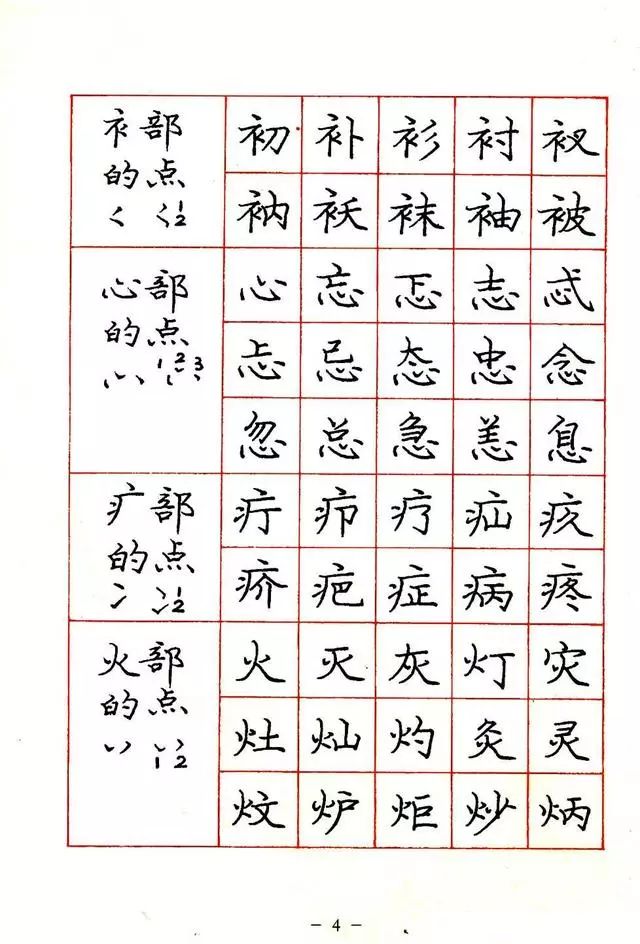 衤部
的点
1 2
初 补 衫 衬 衩
衲 袄 袜 袖 被
心部
的点
1 2 3
心 忘 忑 志 忒
忐 忌 态 忠 念
忽 总 急 恙 息
疒部
的点
1 2
疔 疖 疗 疝 疚
疥 疤 症 病 疼
火部
的点
1 2
火 灭 灰 灯 灾
灶 灿 灼 灸 灵
炆 炉 炬 炒 炳
- 4 -